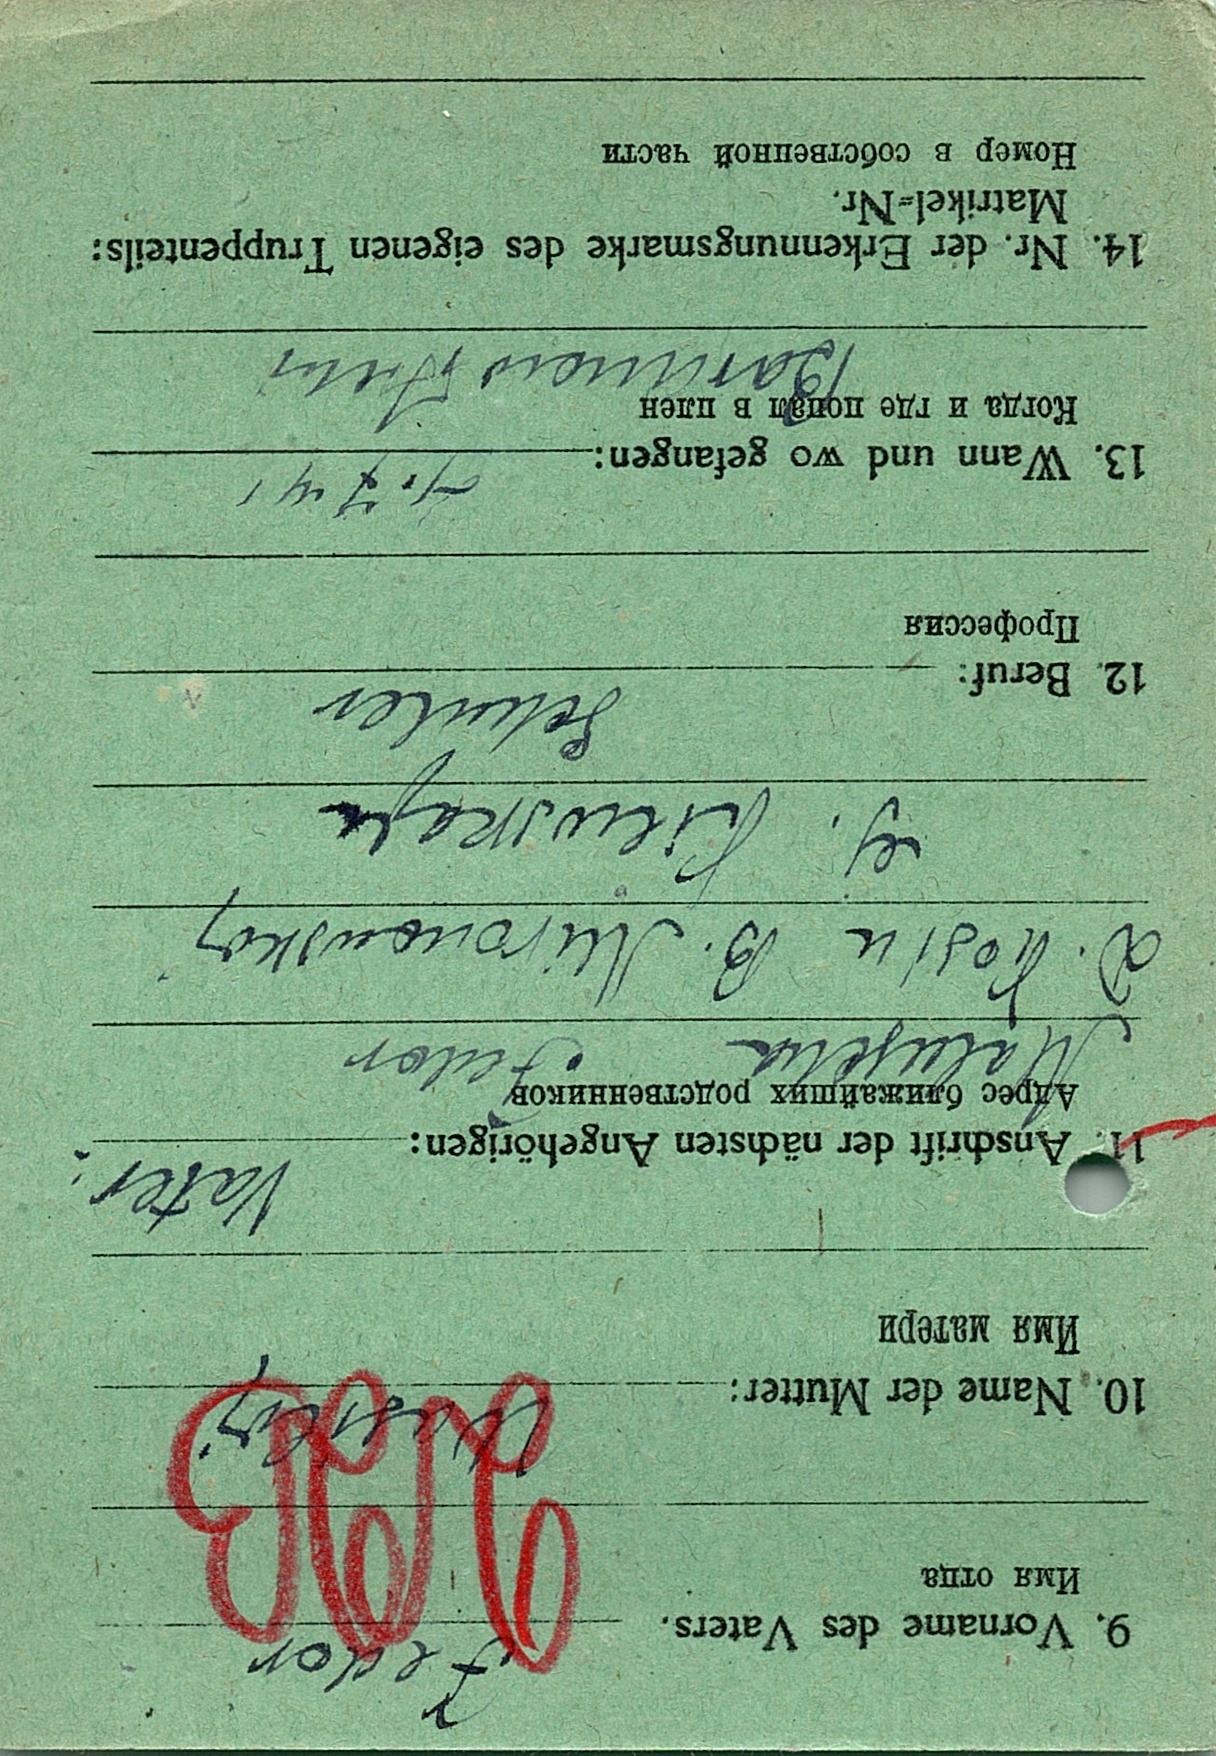 Fedor
9. Vorname des Vaters.
Имя отца
10. Name der Mutter:
Имя матери
Vater:
11. Anschrift der nächsten Angehörigen:
Адрес ближайших родственников
Fedor
D. Kosin B. Mironowskoj
G. Kiewskaja
Schuler
12. Beruf:
Профессия
13. Wann und wo gefangen:
Когда и где попал в плен
14. Nr. der Erkennungsmarke des eigenen Truppenteils:
Matrikel=Nr.
Номер в собственной части